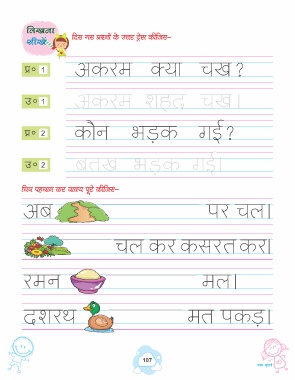 लिखना
सीखें
दिए गए प्रश्नों के उत्तर ट्रेस कीजिए-
प्र० 1 अकरम क्या चख ?
उ० 1 अकरम शहद चख।
प्र० 2 कौन भड़क गई?
उ० 2 बतख भड़क गई।
चित्र पहचान कर वाक्य पूरे कीजिए-
अब पर चल।
चल कर कसरत कर।
रमन मल।
दशरथ मत पकड़।
107